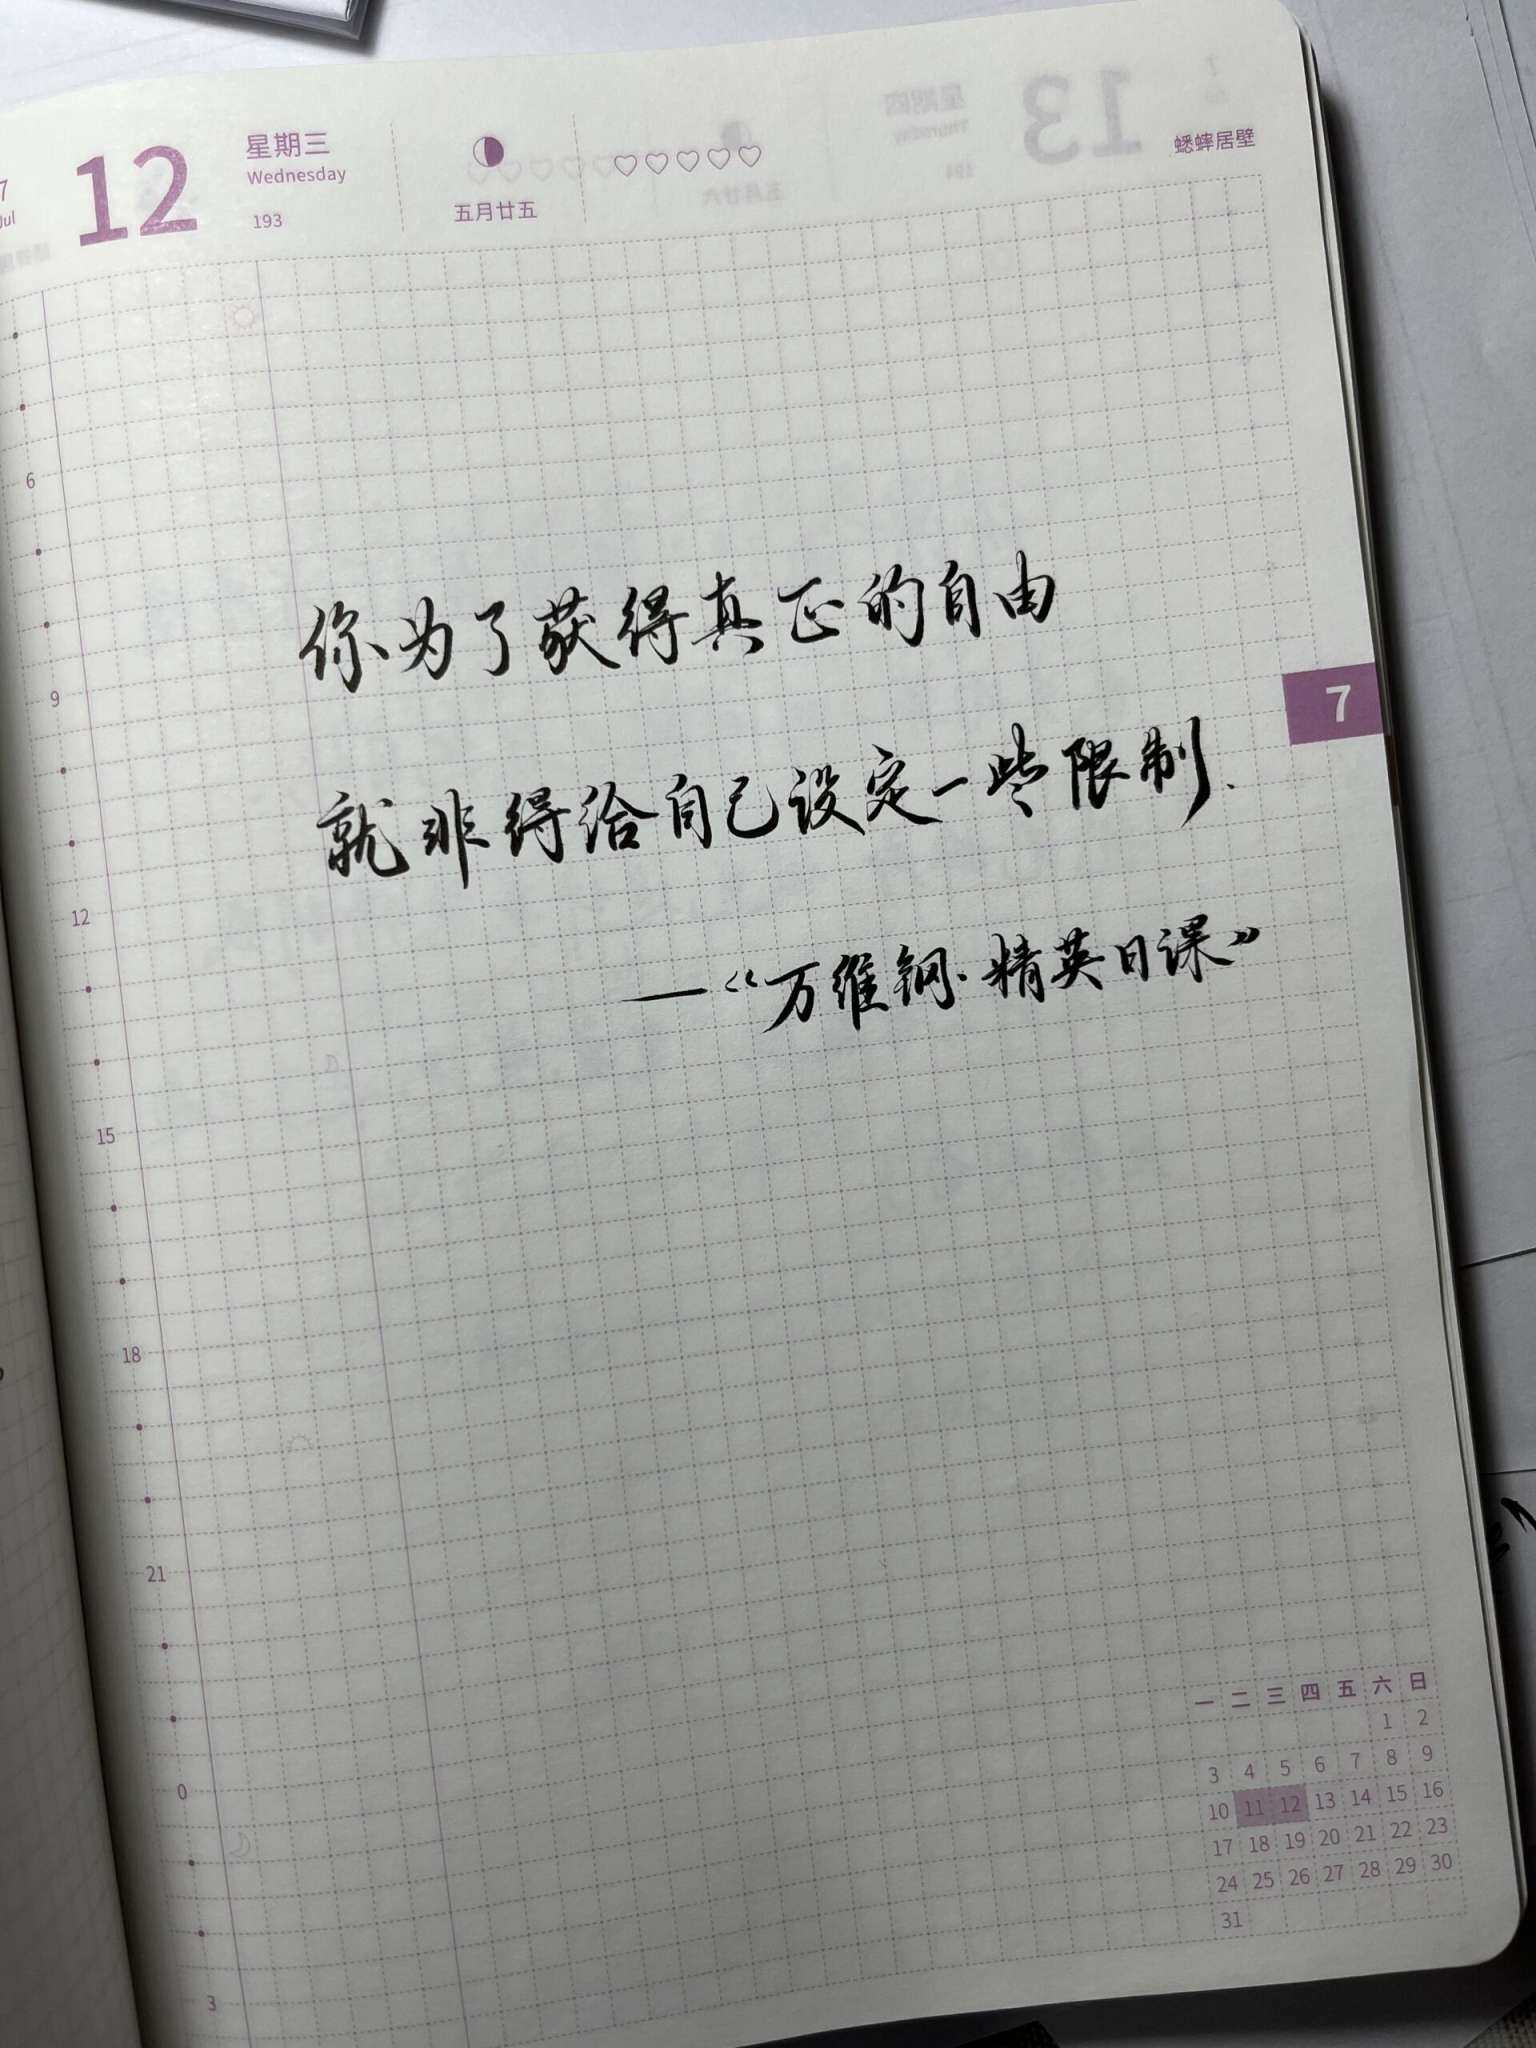 7
Jul
12
星期三
Wednesday
193
五月廿五
蟋蟀居壁
你为了获得真正的自由
就非得给自己设定一些限制.
——《万维钢·精英日课》
7
6
9
12
15
18
21
0
3
一 二 三 四 五 六 日
1 2
3 4 5 6 7 8 9
10 11 12 13 14 15 16
17 18 19 20 21 22 23
24 25 26 27 28 29 30
31